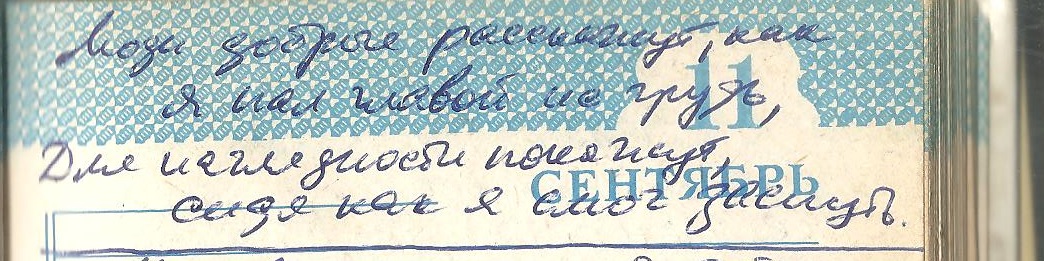 Люди добрые расскажут, как
11
я пал главой на грудь,
Для наглядности покажут,
СЕНТЯБРЬ
сидя как я смог заснуть.